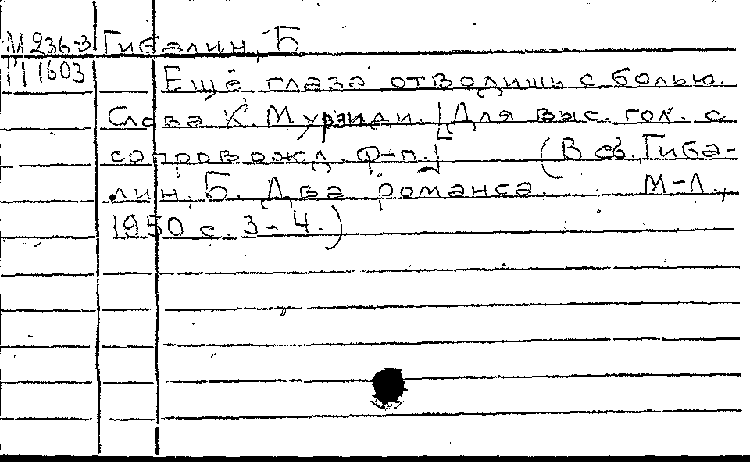 М 236-3 Гибалин, Б
М 1603 Ещё глаза отводишь с болью.
Слова К. Мурзиди. [Для выс. гол. с
сопровожд. ф-п.] (В сб. Гиба-
лин, Б. Два романса. М-Л.,
1950 с. 3-4.)